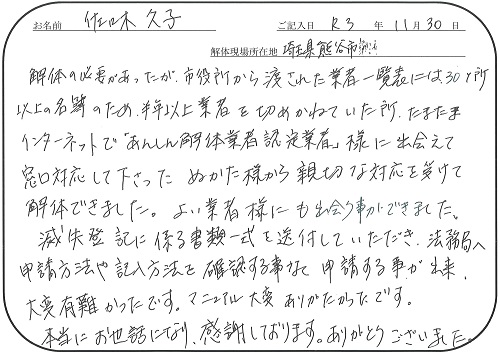 お名前 佐々木 久子 ご記入日 R3 年 11 月 30 日
解体現場所在地 埼玉県熊谷市
解体の必要があったが、市役所から渡された業者一覧表には30ヶ所
以上の名簿のため、半年以上業者を切めかねていた所、たまたま
インターネットで「あんしん解体業者認定業者」様に出会えて
窓口対応して下さった ぬかた様から親切な対応を受けて
解体できました。よい業者様にも出会う事ができました。
滅失登記に係る書類一式を送付していただき、法務局へ
申請方法や記入方法を確認する事なく申請する事が出来、
大変有難かったです。マニュアル大変ありがたかったです。
本当にお世話になり、感謝しております。ありがとうございました。